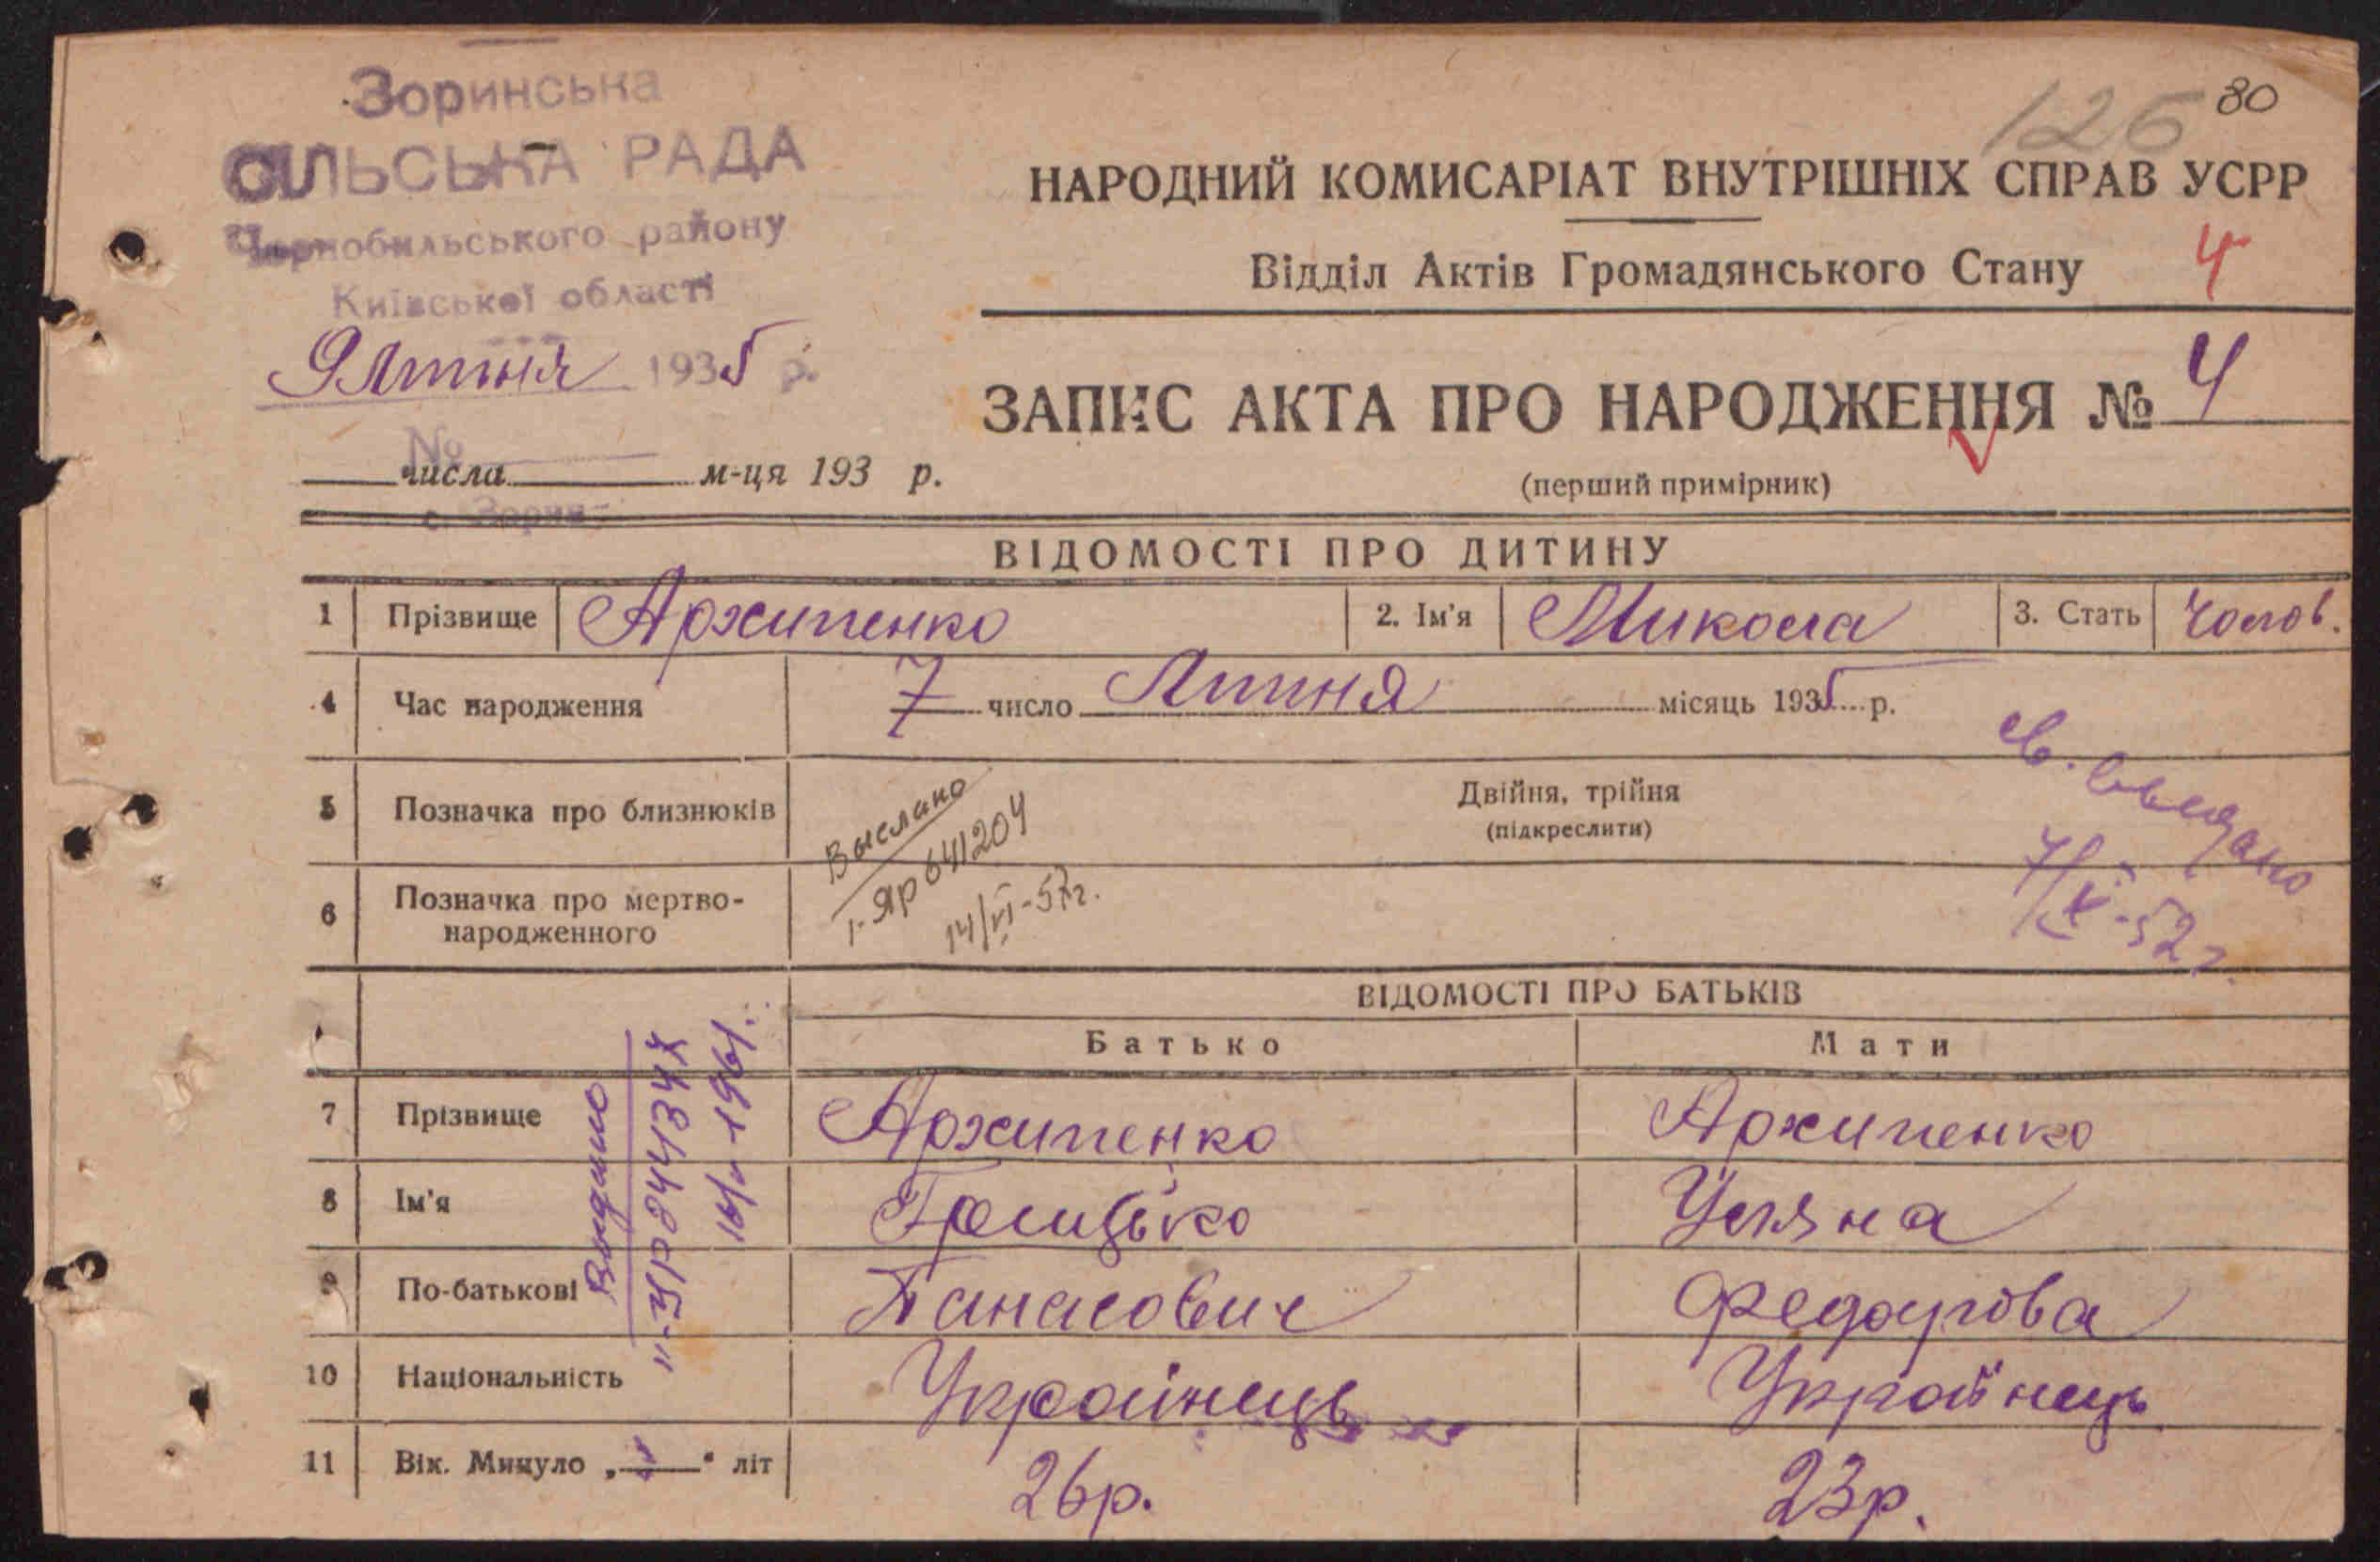 126 80
Зоринська
СІЛЬСЬКА РАДА
Чорнобильського району
Київської області
9 Липня 1935 р.
№
с. Зорин
числа м-ця 193 р.
НАРОДНИЙ КОМИСАРІАТ ВНУТРІШНІХ СПРАВ УСРР
Відділ Актів Громадянського Стану 4
ЗАПИС АКТА ПРО НАРОДЖЕННЯ № 4
(перший примірник)
ВІДОМОСТІ ПРО ДИТИНУ
1 Прізвище Архипенко 2. Ім'я Микола 3. Стать Чолов.
4 Час народження 7 число Липня місяць 1935 р.
5 Позначка про близнюків Двійня, трійня
(підкреслити)
6 Позначка про мертво-
народженного
Выслано
І-Яр 641204
14/VI-57г.
св. выдано
7/X-52г.
ВІДОМОСТІ ПРО БАТЬКІВ
Батько Мати
7 Прізвище Архипенко Архипенко
8 Ім'я Грицько Уляна
9 По-батькові Панасович Федоровa
10 Національність Українець Українець
11 Вік. Минуло „ “ літ 26р. 23р.
Выдано
1961.